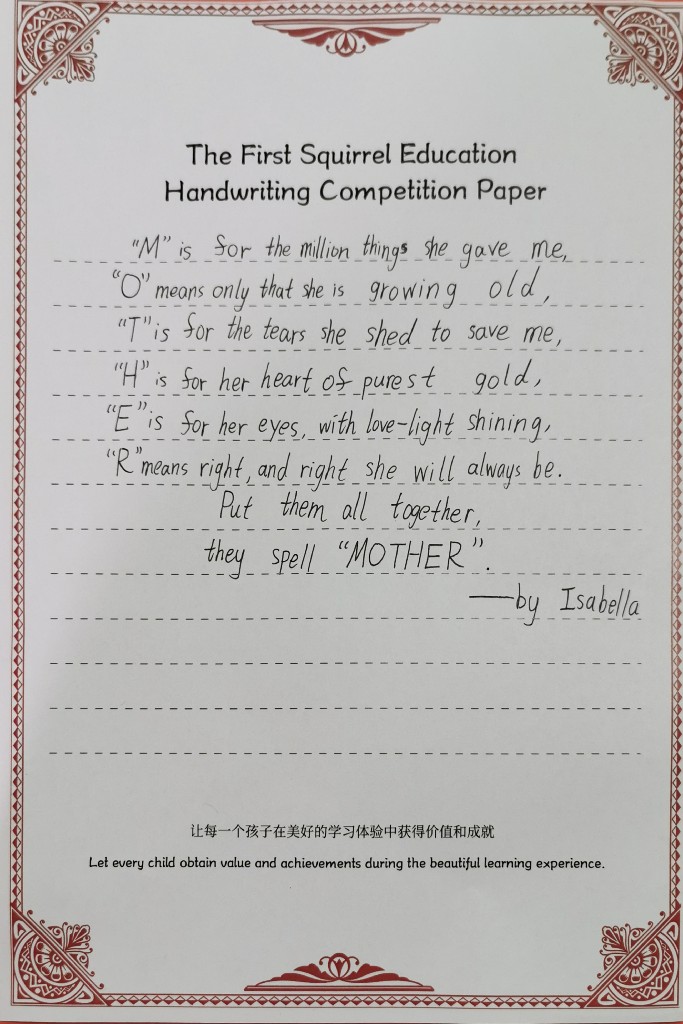 The First Squirrel Education
Handwriting Competition Paper
“M” is for the million things she gave me,
“O” means only that she is growing old,
“T” is for the tears she shed to save me,
“H” is for her heart of purest gold,
“E” is for her eyes, with love-light shining,
“R” means right, and right she will always be.
Put them all together,
they spell “MOTHER”.
——by Isabella
让每一个孩子在美好的学习体验中获得价值和成就
Let every child obtain value and achievements during the beautiful learning experience.